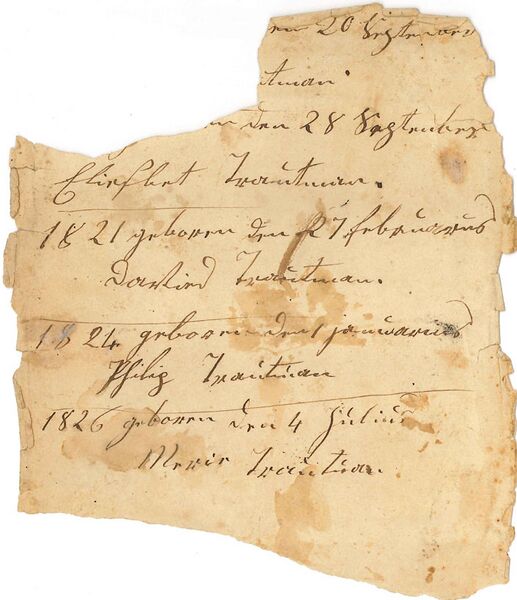 en 20 September
utman
den 28 September
Eliesbet Trautman.
1821 geboren den 27 februarus
Davied Trautman.
1824 geboren den 1 januarus
Philip Trautman
1826 geboren den 4 Julius
Merie Trautman